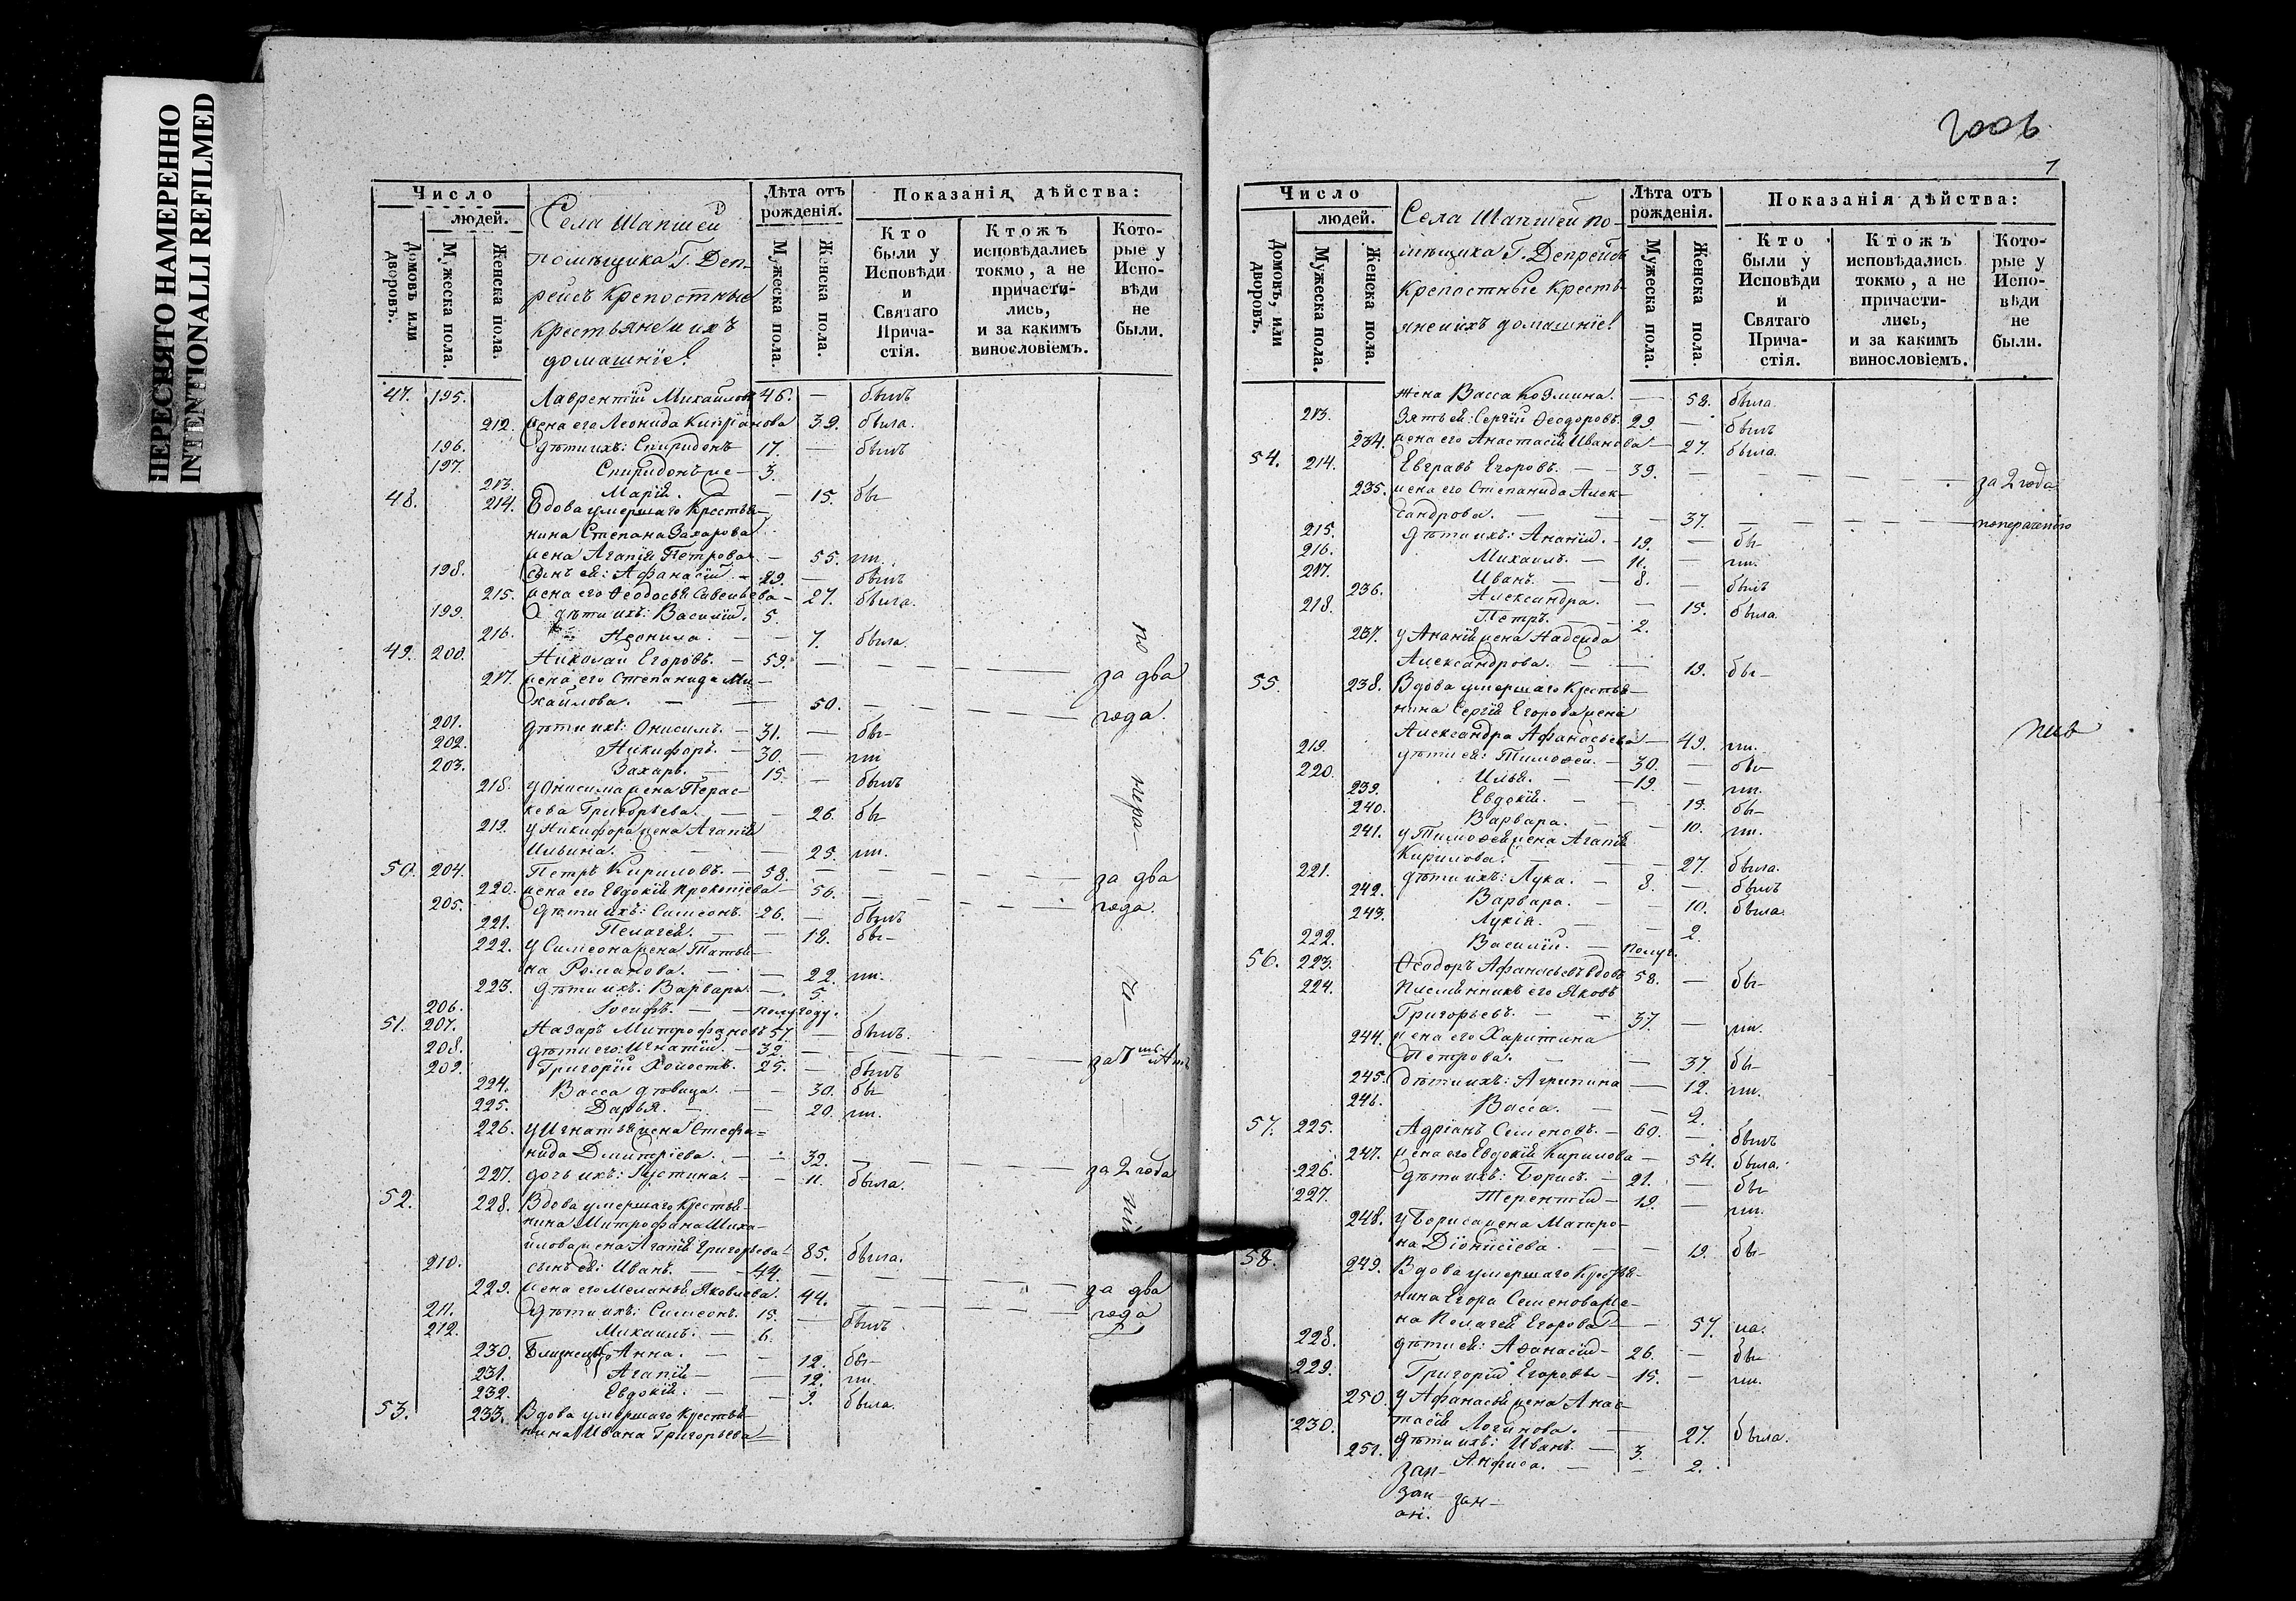 ПЕРЕСНЯТО НАМЕРЕННО
INTENTIONALLI REFILMED
Число
людей.
Домовъ или дворовъ.
Мужеска пола.
Женска пола.
Села Шапшей
помѣщика Г. Деп-
рейсъ крепостные
крестьяне и ихъ
домашніе
Лѣта отъ рожденія.
Мужеска пола.
Женска пола.
Показанія дѣйства:
Кто были у Исповѣди и Святаго Прича-стія.
Ктожъ исповѣдались токмо, а не причасти-лись, и за какимъ винословіемъ.
Кото-рые у Испо-вѣди не были.
47. 195. Лаврентій Михайловъ 46. — былъ
212. жена его Леонида Кипріанова 39. была.
196. дѣти ихъ: Спиридонъ 17. — былъ
197. Спиридонъ же — 3.
213. Марія. — 15. бы-
48. 214. Вдова умершаго крестья-
нина Степана Захарова
жена Агапія Петрова. — 55. ли.
198. сынъ ея: Афанасій — 29. — былъ
215. жена его Ѳеодосья Савельева — 27. была.
199. дѣти ихъ: Василій. 5.
216. Неонила. — 7. была.
49. 200. Николай Егоровъ. — 59. — за два
217. жена его Степанида Ми-
хайлова. — 50. — года.
201. дѣти ихъ: Онисимъ. — 31. — бы-
202. Никифоръ. — 30. — ли
203. Захаръ. — 15. — былъ
218. у Онисима жена Парас-
кева Григорьева. — 26. бы-
219. у Никифора жена Агапія
Ильина. — 25. ли.
50. 204. Петръ Кириловъ. — 58. — за два
220. жена его Евдокія Прокопіева — 56. — года.
205. дѣти ихъ: Симеонъ. 26. — былъ
221. Пелагея. — 18. бы-
222. у Симеона жена Татья-
на Романова. — 22. ли.
223. дѣти ихъ: Варвара. — 5.
206. Іосифъ. — полугоду.
51. 207. Назаръ Митрофановъ 57. — былъ.
208. дѣти его: Игнатій. — 32. —
209. Григорій холостъ. 25. — былъ
224. Васса дѣвица. — 30. бы-
225. Дарья. — 20. ли.
226. у Игнатья жена Стефа-
нида Димитріева. — 32. — за 2 года
227. дочь ихъ: Іустина. — 11. была.
52. 228. Вдова умершаго крестья-
нина Митрофана Миха-
йлова жена Агапія Григорьева 85. была.
210. сынъ ея: Иванъ. — 44. —
229. жена его Меланья Яковлева. 44. — за два
211. дѣти ихъ: Симеонъ. 15. — былъ года
212. Михаилъ. — 6.
230. Близнецы: Анна. — 12. бы-
231. Агапія — 12. ли.
232. Евдокія. — 9. была.
53. 233. Вдова умершаго крестья-
нина Ивана Григорьева
по
нера-
нію
2006
1
Число
людей.
Домовъ, или дворовъ.
Мужеска пола.
Женска пола.
Села Шапшей по-
мѣщика Г. Депрейсъ
крепостные кресть-
яне и ихъ домашніе
Лѣта отъ рожденія.
Мужеска пола.
Женска пола.
Показанія дѣйства:
Кто были у Исповѣди и Святаго Прича-стія.
Ктожъ исповѣдались токмо, а не причасти-лись, и за какимъ винословіемъ.
Кото-рые у Испо-вѣди не были.
жена Васса Козмина. — 58. была
213. Зять ея: Сергій Ѳеодоровъ. 29 — былъ
234. жена его Анастасія Иванова — 27. была.
54. 214. Евграфъ Егоровъ. — 39. — за 2 года
235. жена его Степанида Алек-
сандрова. — 37. — по нераченію
215. дѣти ихъ: Ананія. — 19. — бы-
216. Михаилъ. — 11. — ли.
217. Иванъ. — 8. — былъ
236. Александра. — 15. была.
218. Петръ. — 2.
237. у Ананія жена Надежда
Александрова. — 19. бы-
55. 238. Вдова умершаго крестья-
нина Сергія Егорова жена
Александра Афанасьева — 49. ли.
219. дѣти ея: Тимоѳей. — 30. — бы-
220. Илья. — 19. — ли.
239. Евдокія. — 19. бы-
240. Варвара. — 10. ли.
241. у Тимоѳея жена Агапія
Кирилова. — 27. была.
221. дѣти ихъ: Лука. — 8. — былъ
242. Варвара. — 10. была.
243. Лукія. — 2.
222. Василій. — полуг.
56. 223. Ѳеодоръ Афанасьевъ вдовъ 58. — бы-
224. Племянникъ его Яковъ
Григорьевъ. — 37. — ли.
244. жена его Харитина
Петрова. — 37. бы-
245. дѣти ихъ: Агрипина — 12. ли.
246. Васса. — 2.
57. 225. Адріанъ Семеновъ. — 60. — былъ
247. жена его Евдокія Кирилова — 54. была.
226. дѣти ихъ: Борисъ. — 21. — бы
227. Терентій — 19. — ли.
248. у Бориса жена Матро-
на Діонисіева. — 19. бы-
58. 249. Вдова умершаго крестья-
нина Егора Семенова же-
на Пелагея Егорова — 57. ла.
228. дѣти ея: Аѳанасій — 26. — бы-
229. Григорій Егоровъ — 15. — ли.
250. у Афанасья жена Анас-
тасія Логинова. — 27. была.
230. дѣти ихъ: Иванъ. — 3.
251. Анфиса. — 2.